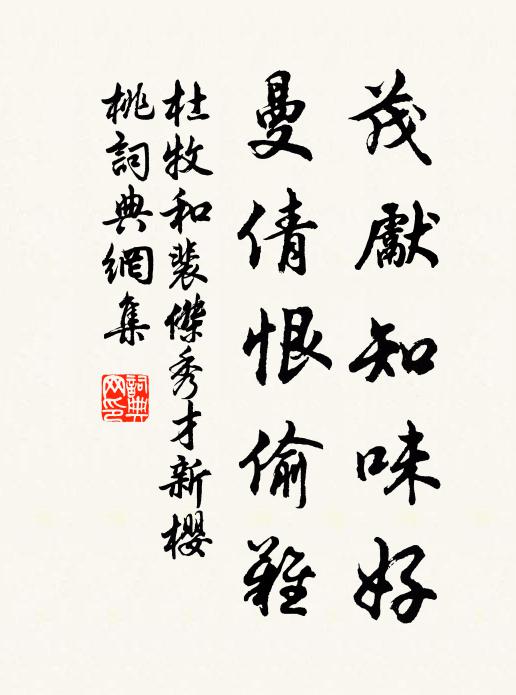 茂獻知味好
曼倩恨偷難
杜牧和裴傑秀才新櫻
桃詞典網集
詞典
网印